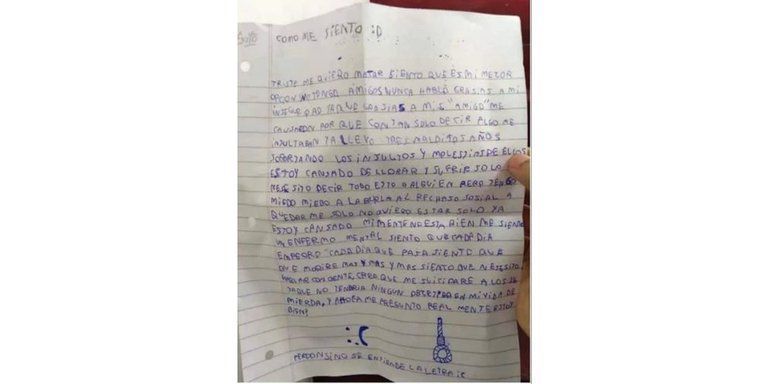 COMO ME SIENTO :D
TRISTE ME QUIERO MATAR SIENTO QUE ES MI MEJOR
OPCION NO TENGO AMIGOS NUNCA HABLÉ GRASIAS A MI
INSEGURIDAD YA QUE GRASIAS A MIS "AMIGO" ME
CAUSARON POR QUE CON TAN SOLO DECIR ALGO ME
INSULTABAN YA LLEVO TRES MALDITOS AÑOS
SOPORTANDO LOS INSULTOS Y MOLESTIAS DE ELLOS
ESTOY CANSADO DE LLORAR Y SUFRIR SOLO
NESESITO DECIR TODO ESTO A ALGUIEN PERO TENGO
MIEDO MIEDO A LA BURLA AL RECHASO SOSIAL A
QUEDARME SOLO NO QUIERO ESTAR SOLO YA
ESTOY CANSADO MI MENTE NO ESTA BIEN ME SIENTO
UN ENFERMO MENTAL SIENTO QUE CADA DIA
EMPEORO CADA DIA QUE PASA SIENTO QUE
QUE MORIRE MAS Y MAS Y MAS SIENTO QUE NESESITO
HABLAR CON GENTE, CREO QUE ME SUICIDARE A LOS
YA QUE NO TENDRIA NINGUN EN MI VIDA DE
MIERDA, Y AHORA ME PREGUNTO REALMENTE ESTOY
BIEN?
:(
PERDON SI NO SE ENTIENDE LA LETRA :C